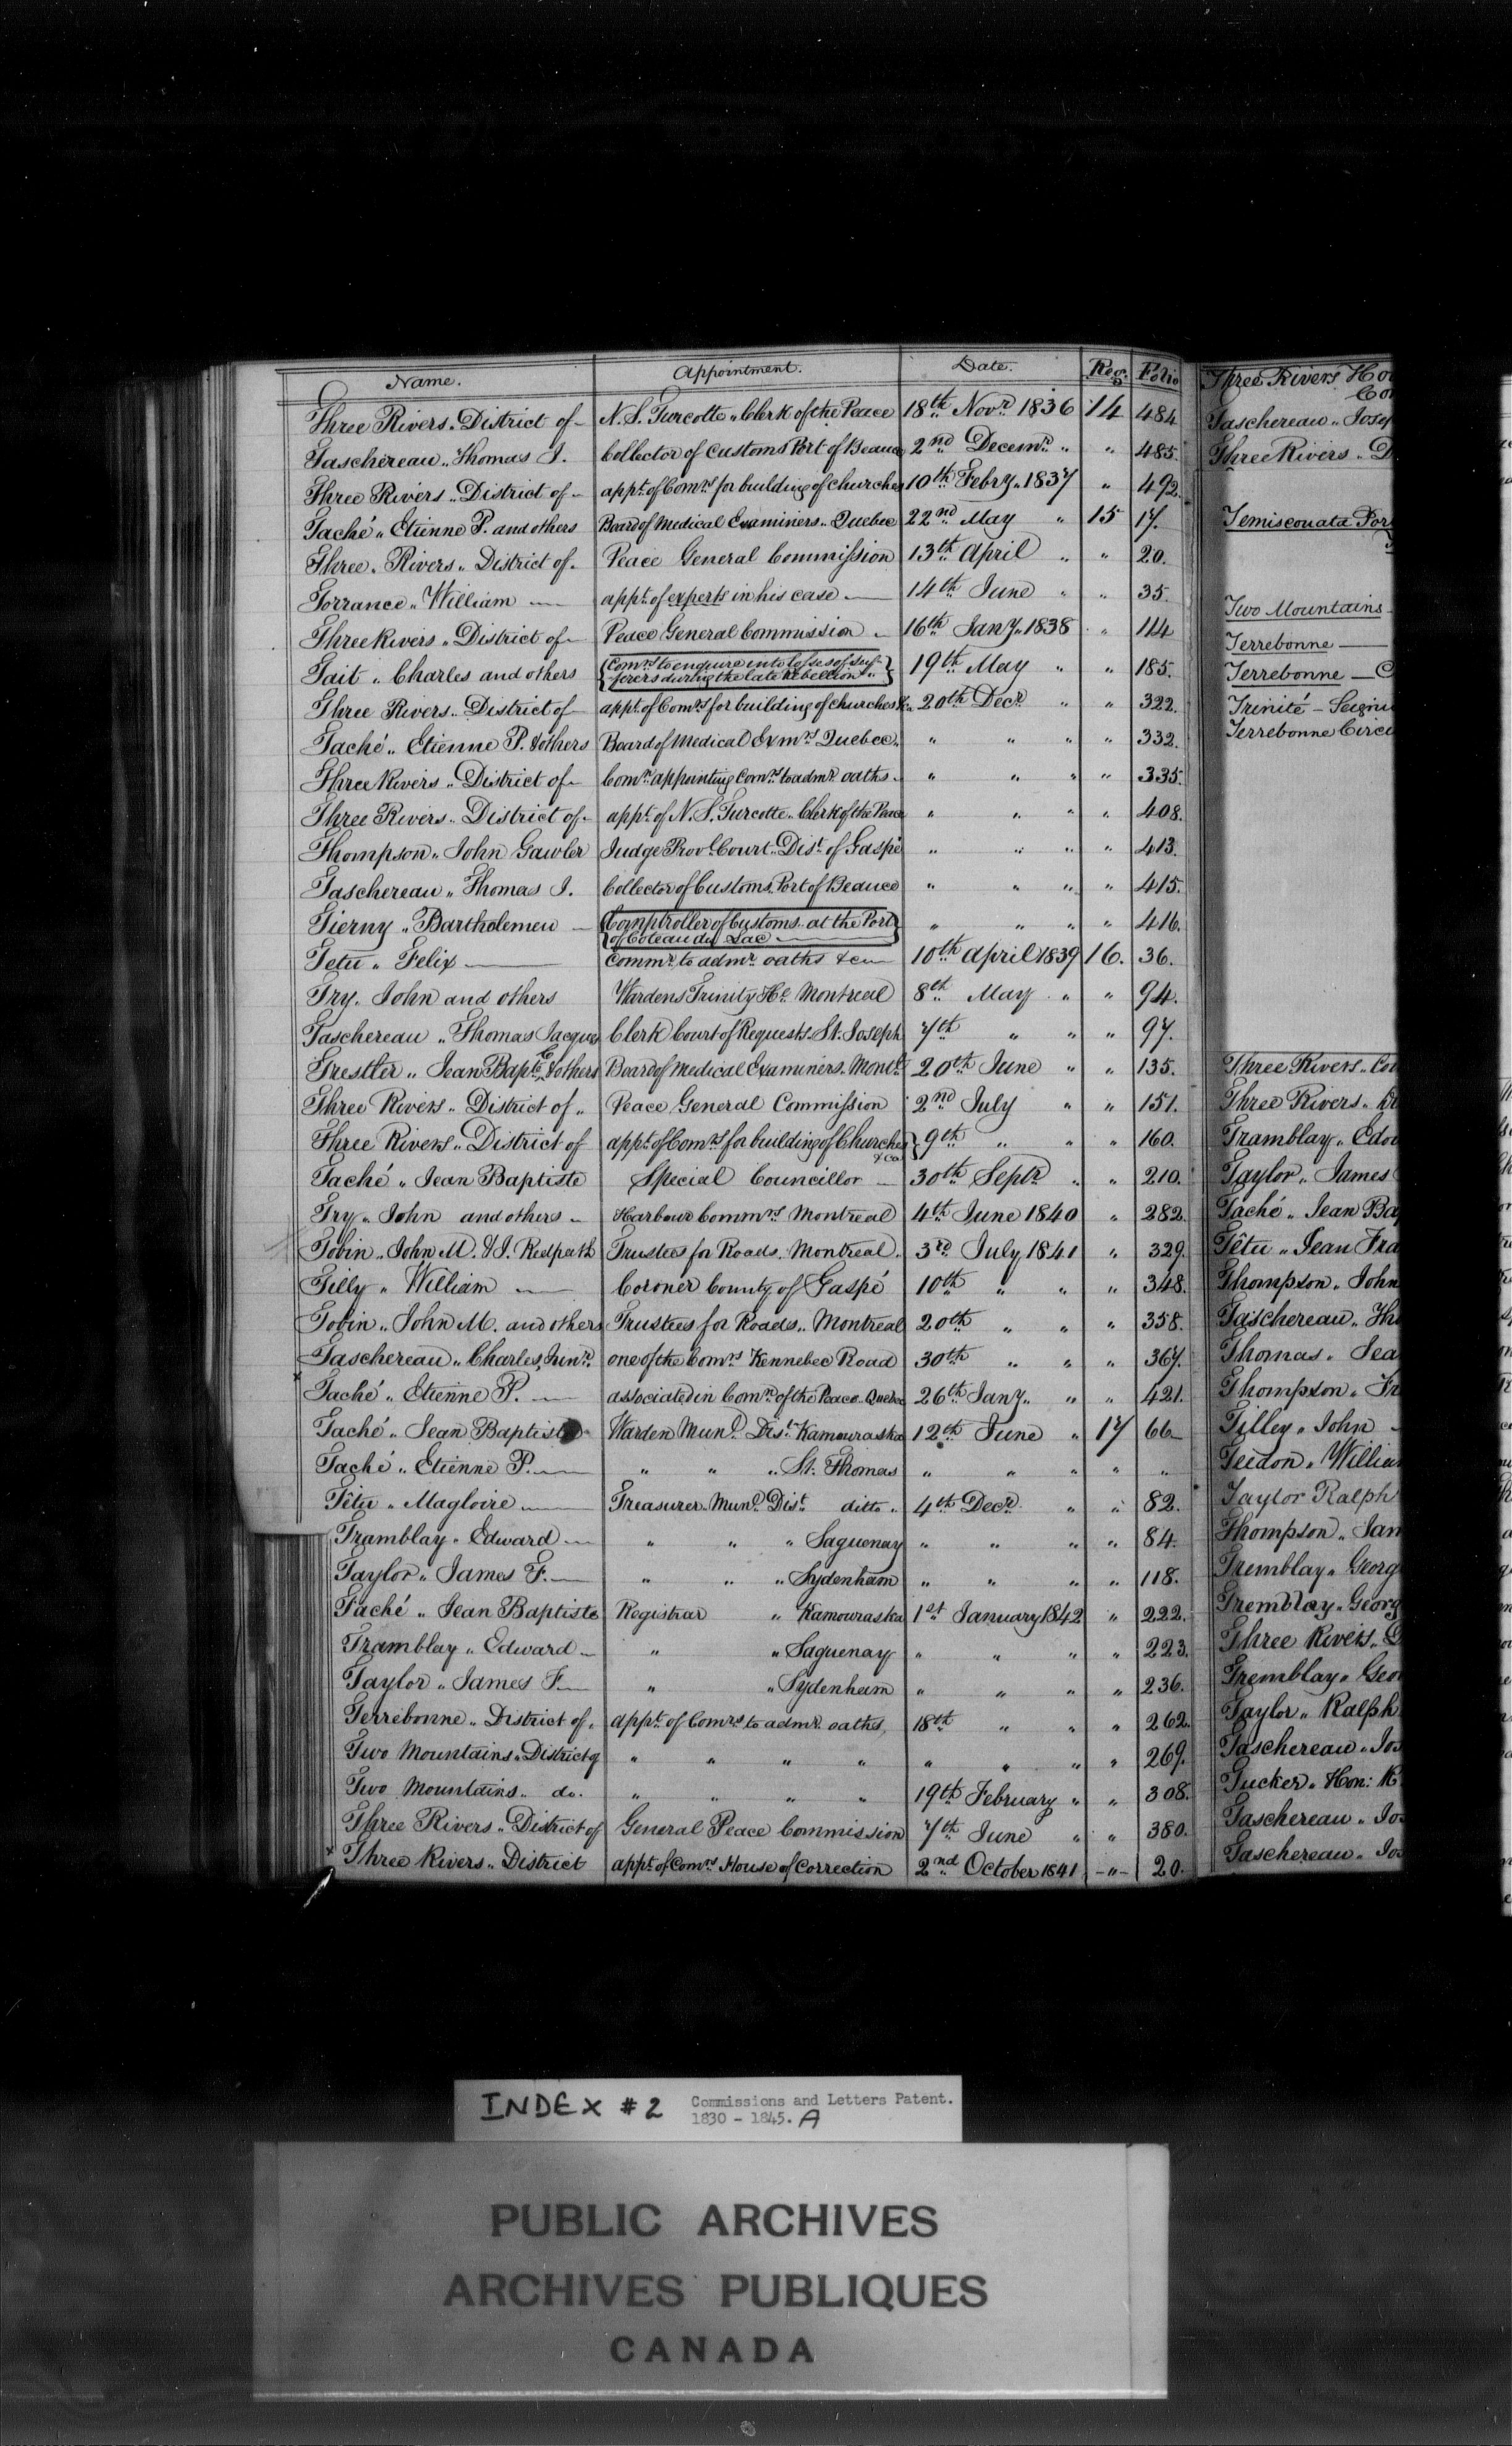 Name. Appointment. Date. Reg. Folio
Three Rivers„ District of N. S. Turcotte„ Clerk of the Peace 18th Novr 1836 14 484
Taschereau„ Thomas J. Collector of Customs Port of Beauce 2nd Decemr „ „ 485.
Three Rivers„ District of appt. of Comrs for building of churches 10th Febry„ 1837 „ 492.
Taché„ Etienne P. and others Board of Medical Examiners„ Quebec 22nd May „ 15 17.
Three„ Rivers„ District of. Peace General Commission 13th April „ „ 20.
Torrance„ William appt. of experts in his case 14th June „ „ 35.
Three Rivers„ District of Peace General Commission 16th Jany„ 1838 „ 114
Tait„ Charles and others Comrs to enquire into losses of suf-
ferers during the late Rebellion„ 19th May „ „ 185.
Three Rivers„ District of appt. of Comrs for building of churches &c„ 20th Decr „ „ 322.
Taché„ Etienne P. & others Board of Medical Exmrs Quebec„ „ „ „ „ 332.
Three Rivers„ District of Comn appointing Comrs to admr oaths „ „ „ „ 335.
Three Rivers„ District of appt. of N. S. Turcotte„ Clerk of the Peace „ „ „ „ 408.
Thompson„ John Gawler Judge Provl Court„ Dist. of Gaspé „ „ „ „ 413.
Taschereau„ Thomas J. Collector of Customs Port of Beauce „ „ „ „ 415.
Tierny„ Bartholemew Comptroller of Customs at the Port
of Coteau du Lac „ „ „ „ 416.
Tetu„ Felix Commr to admr oaths &c 10th April 1839 16. 36.
Try„ John and others Wardens Trinity He Montreal 8th May „ „ 94.
Taschereau„ Thomas Jacques Clerk Court of Requests St. Joseph 7th „ „ „ 97.
Trestler„ Jean Bapte C & others Board of Medical Examiners Montl 20th June „ „ 135.
Three Rivers„ District of„ Peace General Commission 2nd July „ „ 151.
Three Rivers„ District of appt. of Comrs for building of Churches &ca 9th „ „ „ 160.
Taché„ Jean Baptiste Special Councillor 30th Septr „ „ 210.
Try„ John and others Harbour Commrs Montreal 4th June 1840 „ 282.
Tobin„ John M. & J. Redpath Trustees for Roads. Montreal. 3rd July 1841 „ 329.
Tilly„ William Coroner County of Gaspé 10th „ „ „ 348.
Tobin„ John M. and others Trustees for Roads„ Montreal 20th „ „ „ 358.
Taschereau„ Charles, Junr. one of the Comrs Kennebec Road 30th „ „ „ 367.
x Taché„ Etienne P. associated in Comn of the Peace Quebec 26th Jany„ „ „ 421.
Taché„ Jean Baptiste Warden Munl Dist. Kamouraska 12th June „ 17 66
Taché„ Etienne P. „ „ „ St. Thomas „ „ „ „ „
Têtu„ Magloire Treasurer Munl Dist. ditto„ 4th Decr „ „ 82.
Tramblay„ Edward „ „ „ Saguenay „ „ „ „ 84.
Taylor„ James F. „ „ „ Sydenham „ „ „ „ 118.
Taché„ Jean Baptiste Registrar „ Kamouraska 1st January 1842 „ 222.
Tramblay„ Edward „ „ Saguenay „ „ „ „ 223.
Taylor„ James F. „ „ Sydenham „ „ „ „ 236.
Terrebonne„ District of„ appt. of Comrs to admr oaths, 18th „ „ „ 262.
Two Mountains„ District of „ „ „ „ „ „ „ „ 269.
Two Mountains„ do. „ „ „ „ 19th February „ „ 308.
Three Rivers„ District of General Peace Commission 7th June „ „ 380.
x Three Rivers„ District appt. of Comrs House of Correction 2nd October 1841 „ 20.
Three Rivers Hou
Con
Taschereau„ Josep
Three Rivers„ D
Temiscouata Por
Two Mountains
Terrebonne
Terrebonne C
Trinité - Seign
Terrebonne Circu
Three Rivers„ Cou
Three Rivers„ D
Tramblay„ Edou
Taylor„ James
Taché„ Jean Bap
Têtu„ Jean Fra
Thompson„ John
Taschereau„ Tho
Thomas„ Jea
Thompson„ Fr
Tilley„ John
Willia
Taylor Ralph
Thompson„ Jam
Tremblay„ Georg
Tremblay„ Georg
Three Rivers„ D
Tremblay„ Geor
Taylor„ Ralph
Taschereau„ Jos
Tucker„ Hon: R
Taschereau„ Jos
Taschereau„ Jos
INDEX #2 Commissions and Letters Patent.
1830 - 1845. A
PUBLIC ARCHIVES
ARCHIVES PUBLIQUES
CANADA